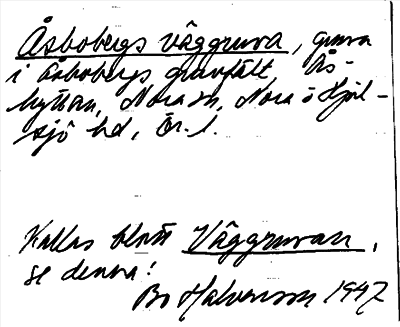 Åsbobergs väggruva, gruva
i Åsbobergs gruvfält, Ås-
hyttan, Nora sn, Nora o Hjul-
sjö hd, Ör. l.
Kallas blott Väggruvan,
se denna!
Bo Halvarsson 1947